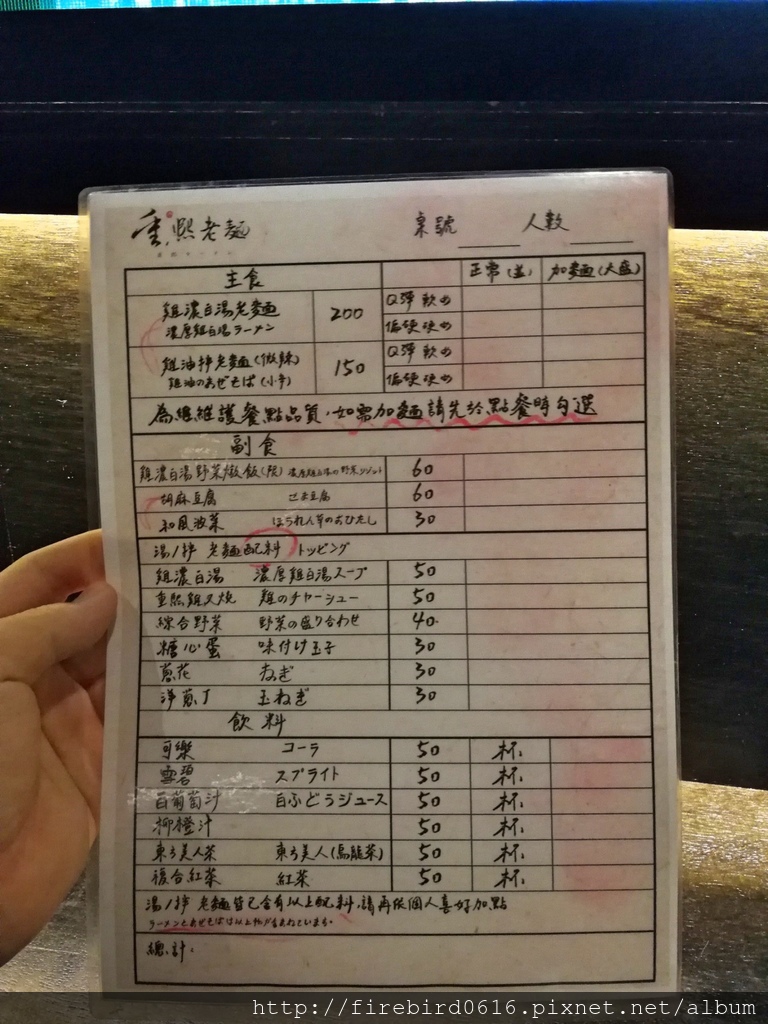 重熙老麵 桌號 人數
主食 正常(並) 加麵(大盛)
雞濃白湯老麵 200 Q彈 軟め
濃厚雞白湯ラーメン 偏硬 硬め
雞油拌老麵(微辣) 150 Q彈 軟め
雞油のあぜそば(小辛) 偏硬 硬め
為維護餐點品質,如需加麵請先於點餐時勾選
副食
雞濃白湯野菜燉飯(限) 60
胡麻豆腐 ごま豆腐 60
和風波菜 ほうれん草のおひたし 30
湯/拌 老麵配料 トッピング
雞濃白湯 濃厚雞白湯スープ 50
重熙雞叉燒 雞のチャーシュー 50
綜合野菜 野菜の盛り合わせ 40
糖心蛋 味付け玉子 30
蔥花 ねぎ 30
洋蔥丁 玉ねぎ 30
飲料
可樂 コーラ 50 杯
雪碧 スプライト 50 杯
白葡萄汁 白ぶどうジュース 50 杯
柳橙汁 50 杯
東方美人茶 東方美人(烏龍茶) 50 杯
複合紅茶 紅茶 50 杯
湯/拌 老麵皆已含有以上配料,請再依個人喜好加點
總計:
http://firebird0616.pixnet.net/album